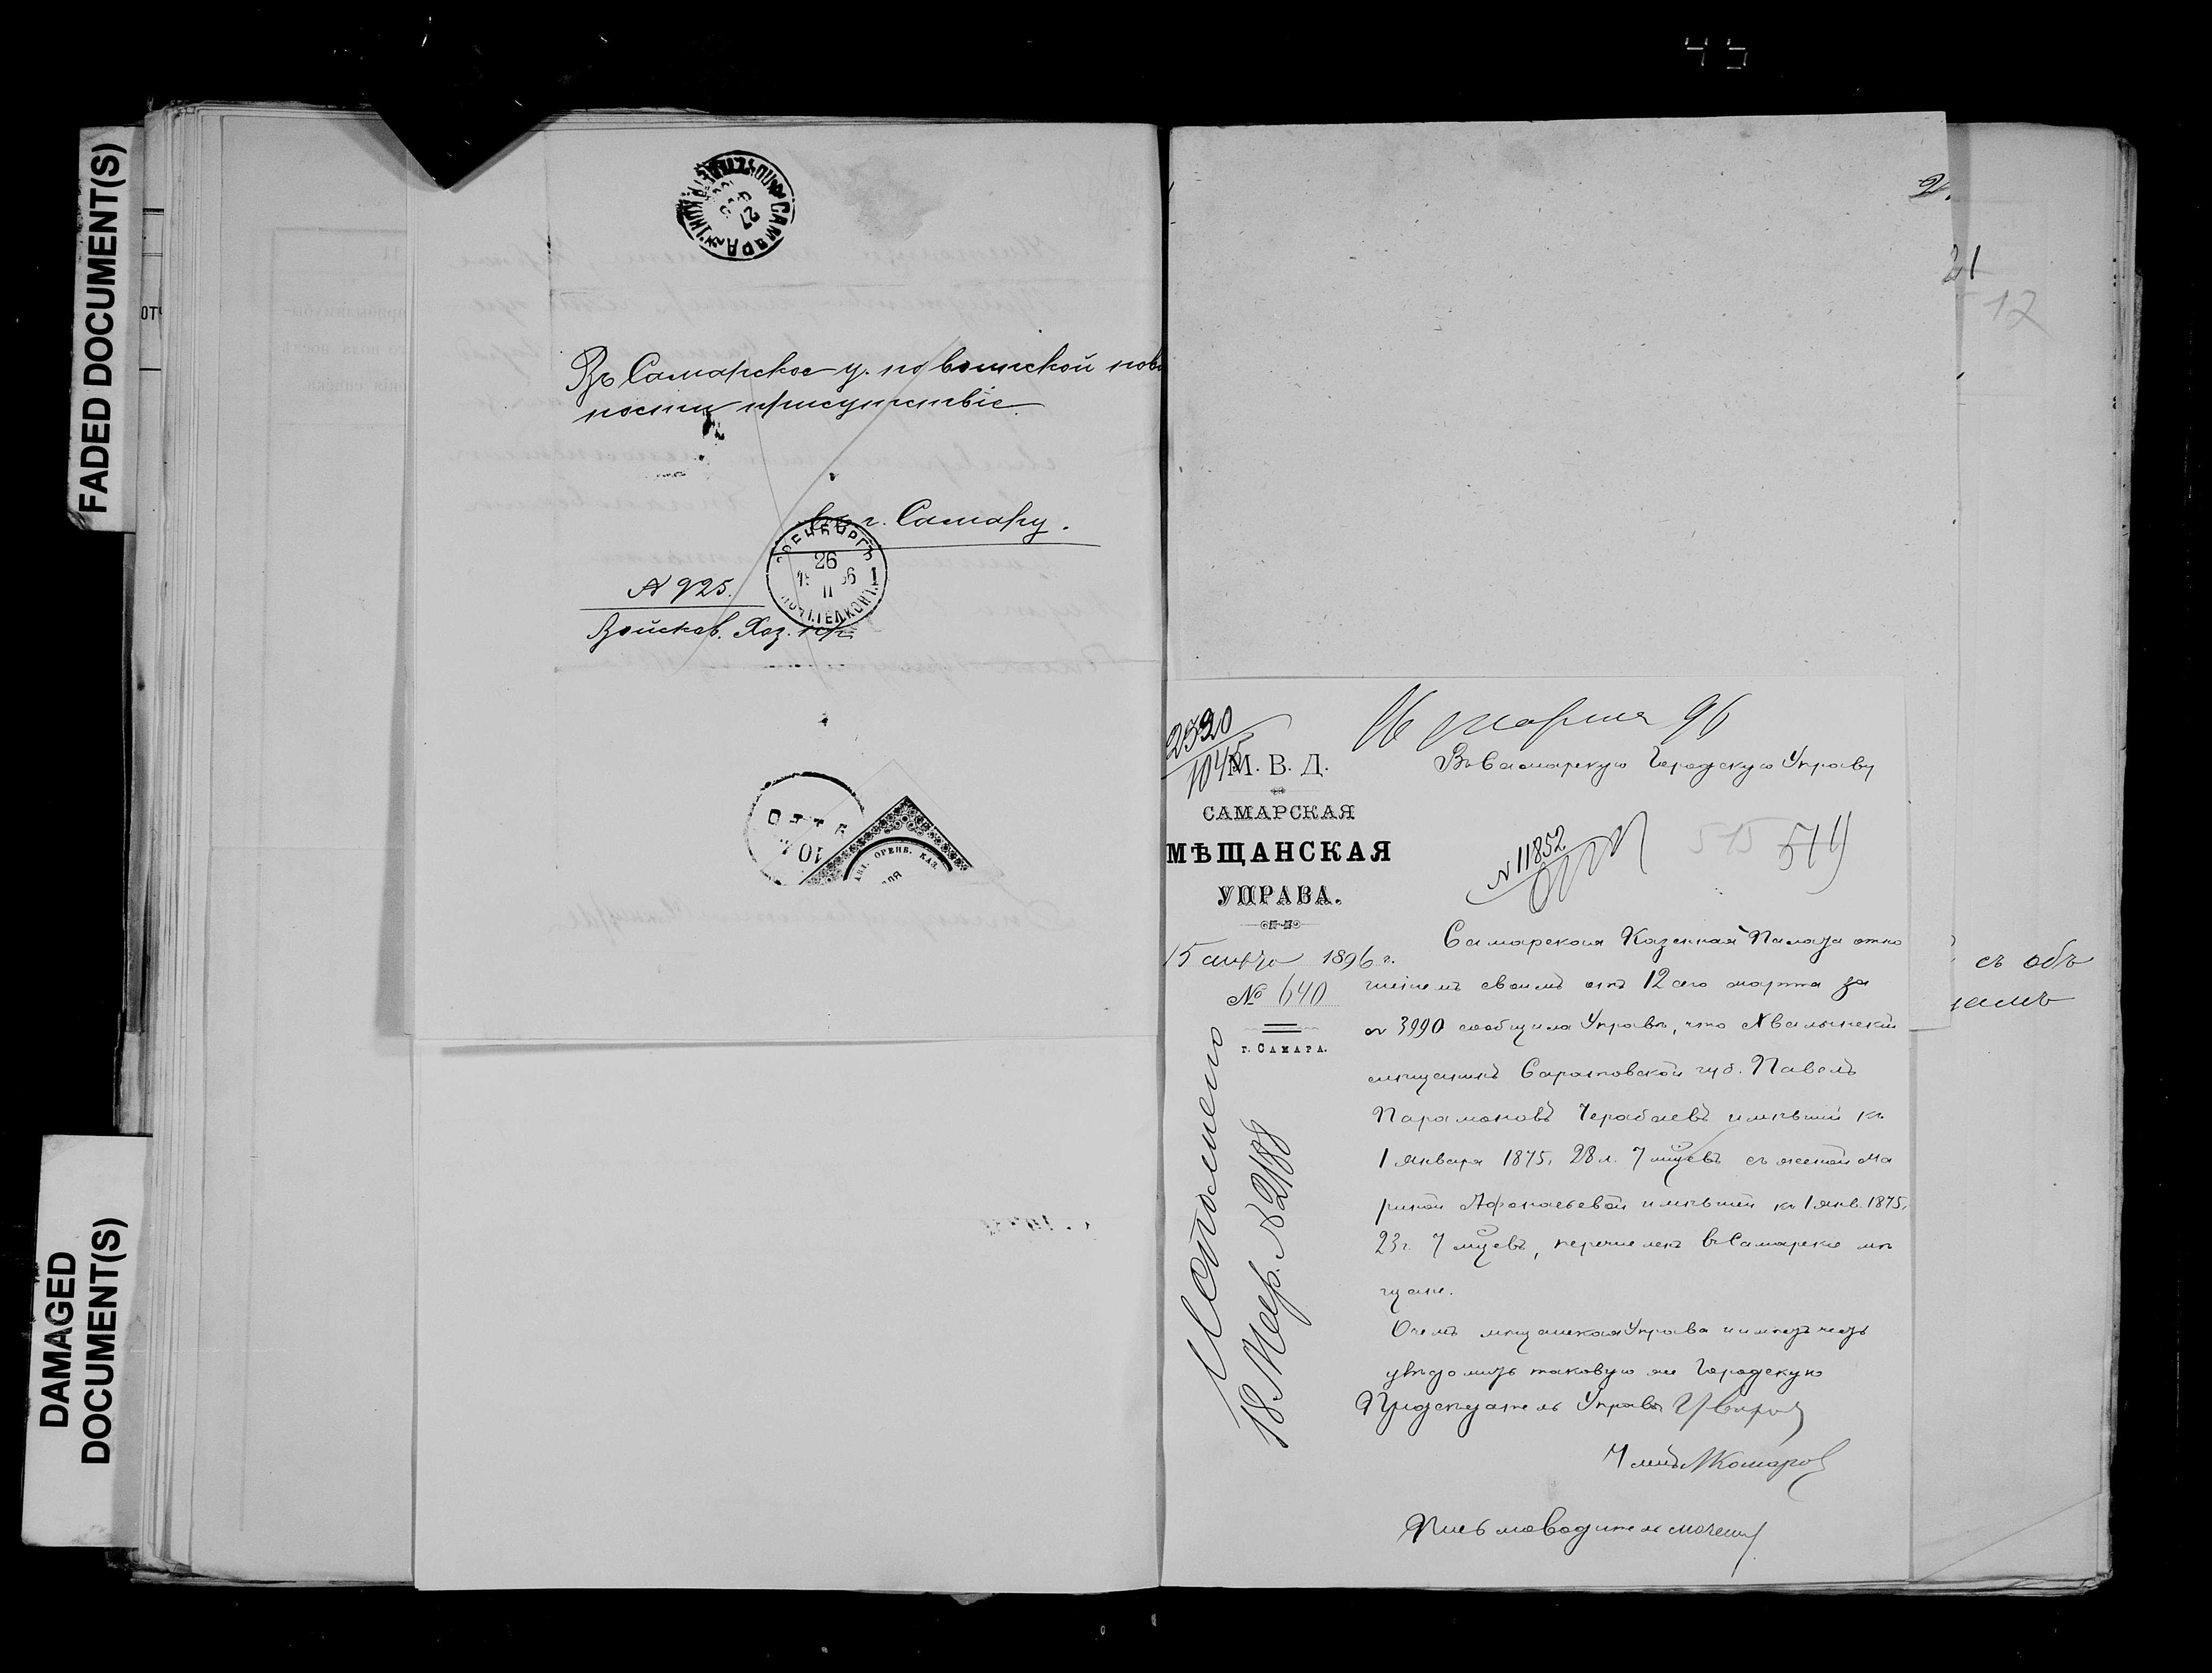 45
FADED DOCUMENT(S)
DAMAGED
DOCUMENT(S)
САМАРА
27
Въ Самарское у. по воинской пов
ности присутствіе
въ г. Самару.
ОРЕНБУРГЪ
26
II
№ 925.
Войсков. Хоз. пр.
ОРЕНБ. КАЗ.
21
12
съ объ
2520
1045
16 марта 96
М. В. Д.
САМАРСКАЯ
МѢЩАНСКАЯ
УПРАВА.
Въ Самарскую Городскую Управу
N 11852
515 514
15 марта 1896 г.
№ 640
г. САМАРА.
Исполнено
18 Мар. № 2188
Самарская Казенная Палата отно
шеніемъ своимъ отъ 12 сего марта за
№ 3990 сообщила Управѣ, что Хвалынскій
мѣщанинъ Саратовской губ. Павелъ
Парамоновъ Черабаевъ имѣвшій къ
1 Января 1875, 28 л. 7 мцевъ съ женой Ма
риной Афонасьевой имѣвшей къ 1 янв. 1875,
23 г. 7 мцевъ, перечисленъ въ Самарскіе мѣ
щане.
О чемъ мѣщанская Управа и имѣетъ честь
увѣдомить таковую же Городскую
Предсѣдатель Управы
Членъ Комаров
Письмоводитель